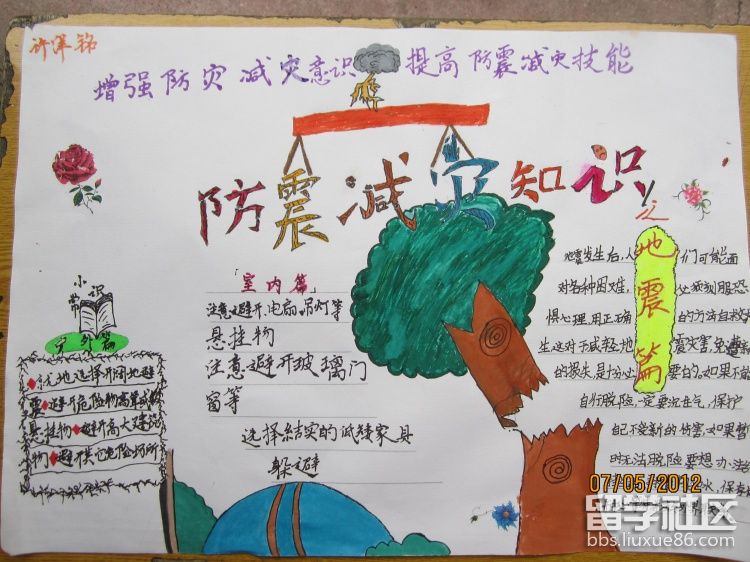 许泽铭
增强防灾减灾意识 提高防震减灾技能
防震减灾知识
之
地震篇
小常识
室外篇
就地选择开阔地避
震♦避开危险物高耸或
悬挂物♦避开高大建筑
物♦避开其它危险场所
室内篇
注意避开、电扇、吊灯等
悬挂物
注意避开玻璃门
窗等
选择结实的低矮家具
躲避
地震发生后,人们可能面
对各种困难,必须克服恐
惧心理,用正确的方法自救
生这对于减轻地震灾害,免
的损失,是十分必要的。如果不能
自行脱险,一定要沉住气,保护
自己不受新的伤害,如果暂
时无法脱险要想办法
水,保
07/05/2012
留学社区
bbs.liuxue86.com